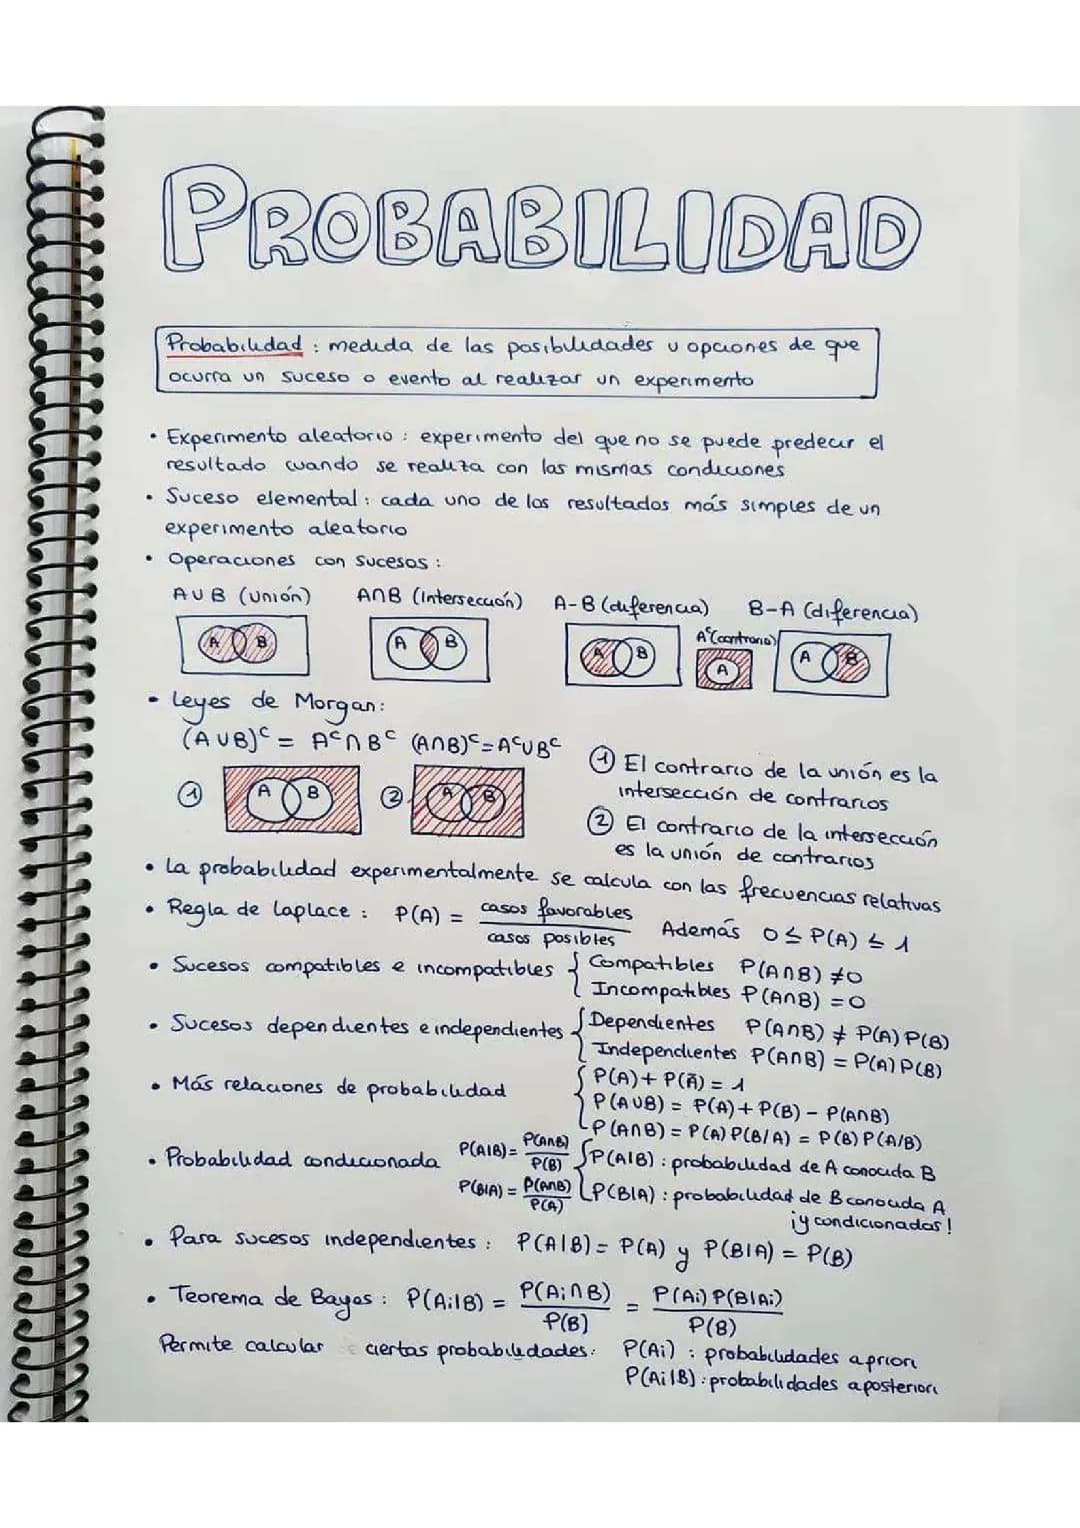 PROBABILIDAD
Probabilidad : medida de las posibilidades u opciones de que
ocurra un suceso o evento al realizar un experimento
• Experimento aleatorio : experimento del que no se puede predecir el
resultado cuando se realiza con las mismas condiciones
• Suceso elemental : cada uno de los resultados más simples de un
experimento aleatorio
• Operaciones con sucesos :
A∪B (unión) A∩B (Intersección) A-B (diferencia) B-A (diferencia)
A^c (contrario)
A B A B A B A A B
• Leyes de Morgan:
(A∪B)^c = A^c∩B^c (A∩B)^c = A^c∪B^c
① A B ② A B
① El contrario de la unión es la
intersección de contrarios
② El contrario de la intersección
es la unión de contrarios
• La probabilidad experimentalmente se calcula con las frecuencias relativas
• Regla de laplace : P(A) = casos favorables / casos posibles Además 0 ≤ P(A) ≤ 1
• Sucesos compatibles e incompatibles { Compatibles P(A∩B) ≠ 0
Incompatibles P(A∩B) = 0
• Sucesos dependientes e independientes { Dependientes P(A∩B) ≠ P(A) P(B)
Independientes P(A∩B) = P(A) P(B)
• Más relaciones de probabilidad { P(A) + P(Ā) = 1
P(A∪B) = P(A) + P(B) - P(A∩B)
P(A∩B) = P(A) P(B/A) = P(B) P(A/B)
• Probabilidad condicionada P(A|B) = P(A∩B) / P(B) { P(A|B) : probabilidad de A conocida B
P(B|A) = P(A∩B) / P(A) P(B|A) : probabilidad de B conocida A
¡y condicionadas!
• Para sucesos independientes : P(A|B) = P(A) y P(B|A) = P(B)
• Teorema de Bayes : P(Ai|B) = P(Ai∩B) / P(B) = P(Ai) P(B|Ai) / P(B)
Permite calcular ciertas probabilidades: P(Ai) : probabilidades a priori
P(Ai|B) : probabilidades a posteriori